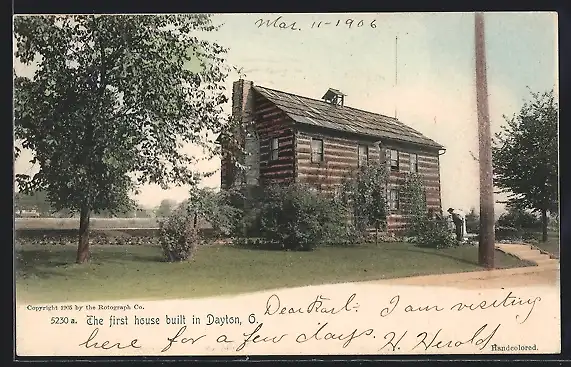 Mar. 11-1906
Copyright 1905 by the Rotograph Co.
5230 a. The first house built in Dayton, O.
Dear Karl:- I am visiting
here for a few days. H. Herold
Handcolored.